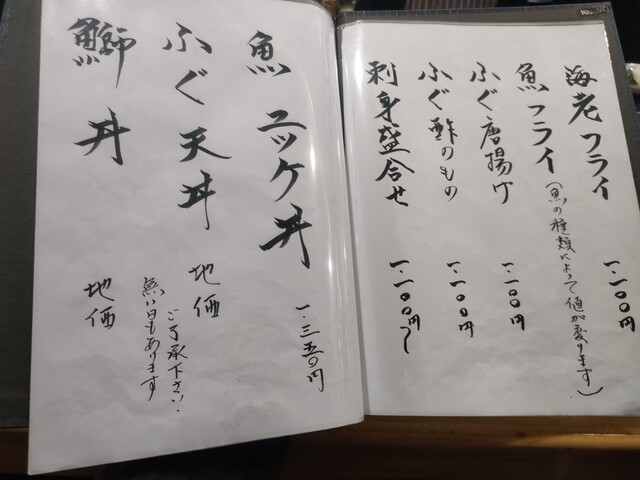 海老フライ 一.一〇〇円
魚フライ(魚の種類によって値が変ります)
ふぐ唐揚げ 一.一〇〇円
ふぐ酢のもの 一.一〇〇円
刺身盛合せ 一.一〇〇円〜
魚ユッケ丼 一.三五〇円
ふぐ天丼 地価
ご了承下さい.
無い日もあります
鰤丼 地価